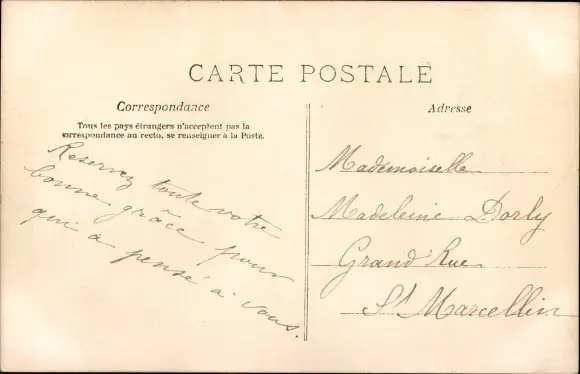 CARTE POSTALE
Correspondance
Tous les pays étrangers n'acceptent pas la
correspondance au recto, se renseigner à la Poste.
Reservez toute votre
bonne grâce pour
qui a pensé à vous.
Adresse
Mademoiselle
Madeleine Dorly
Grand'Rue
St Marcellin